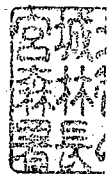 宮城
森林
署長